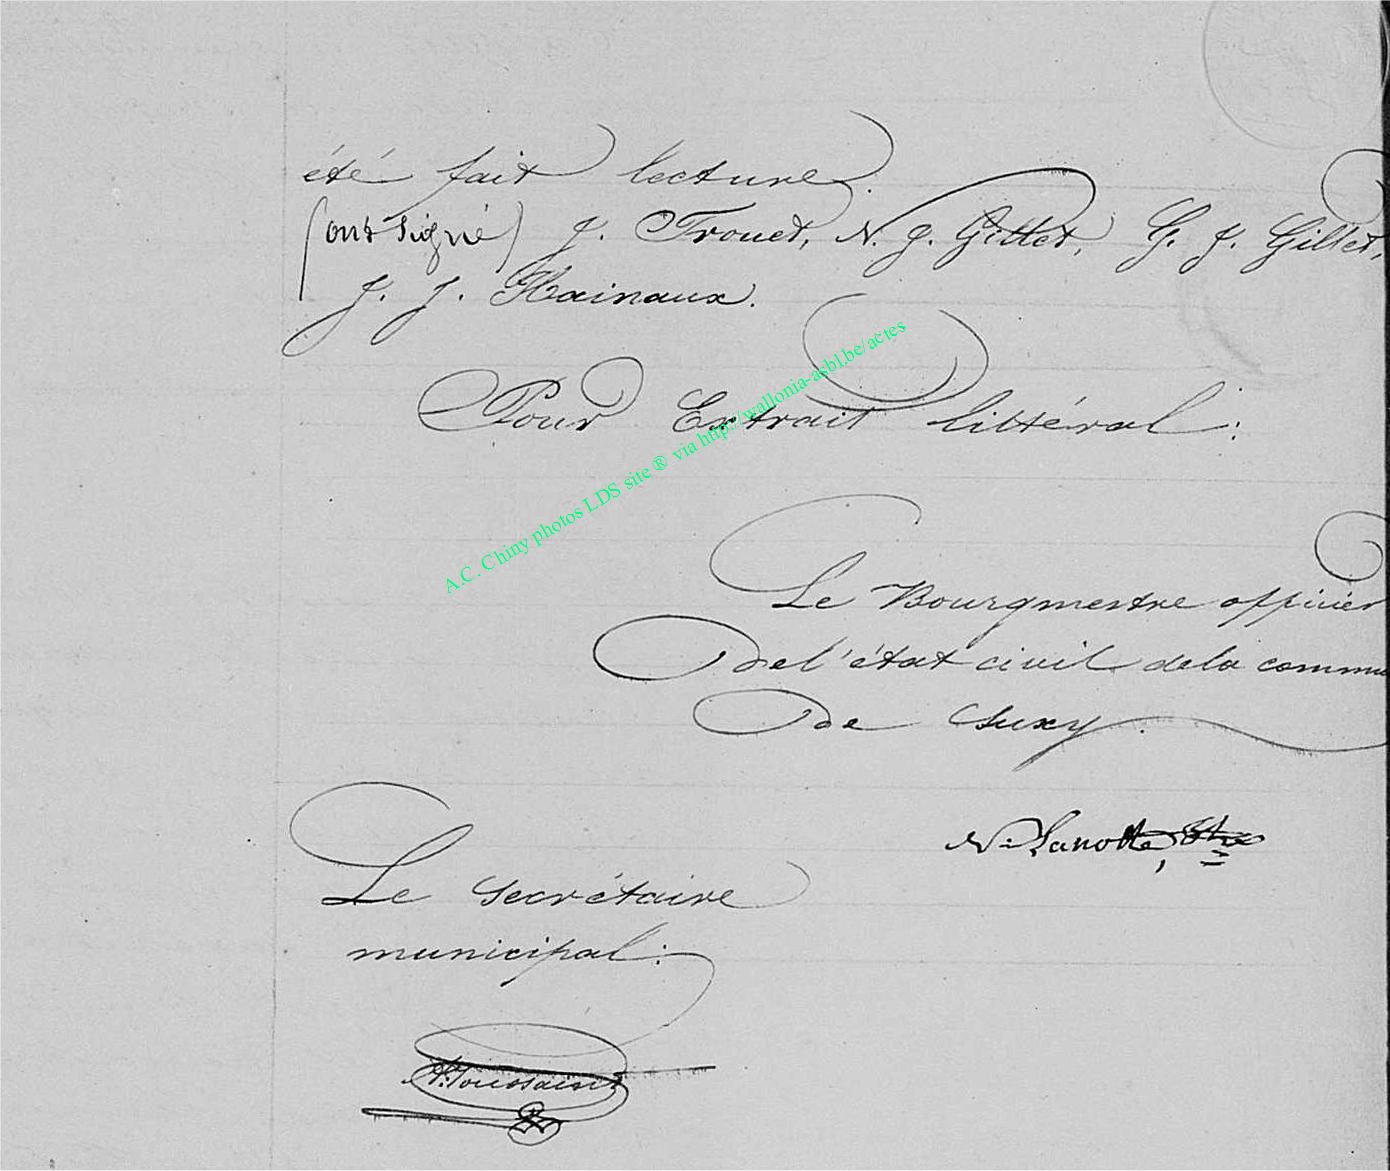 été fait lecture.
(ont signé) J. Trouet, N. J. Gillet, G. J. Gillet,
J. J. Hainaux.
Pour Extrait littéral:
A.C. Chiny photos LDS site ® via http://wallonia-asbl.be/actes
Le Bourgmestre officier
de l'état civil de la commu
de Suxy.
N. Lanotte,
Le Secrétaire
municipal:
Toussaint